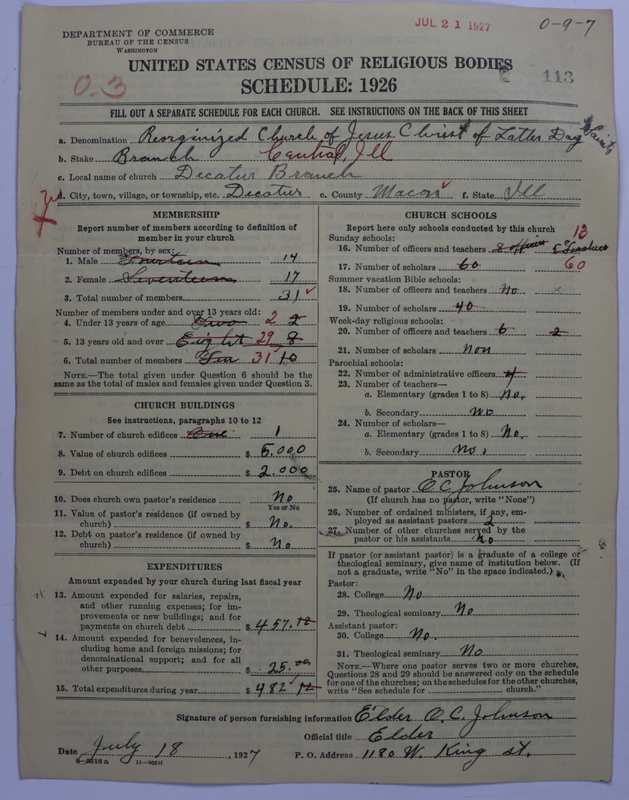 JUL 21 1927
0-9-7
DEPARTMENT OF COMMERCE
BUREAU OF THE CENSUS
WASHINGTON
UNITED STATES CENSUS OF RELIGIOUS BODIES
113
0.3
SCHEDULE: 1926
FILL OUT A SEPARATE SCHEDULE FOR EACH CHURCH. SEE INSTRUCTIONS ON THE BACK OF THIS SHEET
a. Denomination Reorginized Church of Jesus Christ of Latter Day Saints
b. Stake Branch Central, Ill
c. Local name of church Decatur Branch
d. City, town, village, or township, etc. Decatur e. County Macon f. State Ill
MEMBERSHIP
Report number of members according to definition of
member in your church
Number of members, by sex:
1. Male Fourteen 14
2. Female Seventeen 17
3. Total number of members 31
Number of members under and over 13 years old:
4. Under 13 years of age Two 2 2
5. 13 years old and over Eight 29 8
6. Total number of members Ten 31 10
NOTE.—The total given under Question 6 should be the
same as the total of males and females given under Question 3.
CHURCH BUILDINGS
See instructions, paragraphs 10 to 12
7. Number of church edifices One 1
8. Value of church edifices $ 5.000
9. Debt on church edifices $ 2.000
10. Does church own pastor's residence No
Yes or No
11. Value of pastor's residence (if owned by
church) $ No.
12. Debt on pastor's residence (if owned by
church) $ No
EXPENDITURES
Amount expended by your church during last fiscal year
13. Amount expended for salaries, repairs,
and other running expenses; for im-
provements or new buildings; and for
payments on church debt $ 457.
14. Amount expended for benevolences, in-
cluding home and foreign missions; for
denominational support; and for all
other purposes $ 25.00
15. Total expenditures during year $ 482
CHURCH SCHOOLS
Report here only schools conducted by this church
Sunday schools: 13
16. Number of officers and teachers 8 officers 5 Teachers
17. Number of scholars 60 60
Summer vacation Bible schools:
18. Number of officers and teachers No
19. Number of scholars 40
Week-day religious schools:
20. Number of officers and teachers 6 2
21. Number of scholars non
Parochial schools:
22. Number of administrative officers 4
23. Number of teachers—
a. Elementary (grades 1 to 8) No.
b. Secondary No
24. Number of scholars—
a. Elementary (grades 1 to 8) No.
b. Secondary No.
PASTOR
25. Name of pastor O C Johnson
(If church has no pastor, write "None")
26. Number of ordained ministers, if any, em-
ployed as assistant pastors 2
27. Number of other churches served by the
pastor or his assistants No
If pastor (or assistant pastor) is a graduate of a college or
theological seminary, give name of institution below. (If
not a graduate, write "No" in the space indicated.)
Pastor:
28. College No
29. Theological seminary No
Assistant pastor:
30. College No.
31. Theological seminary No
NOTE.—Where one pastor serves two or more churches,
Questions 28 and 29 should be answered only on the schedule
for one of the churches; on the schedules for the other churches,
write "See schedule for church."
Signature of person furnishing information Elder O. C. Johnson
Official title Elder
Date July 18, 1927 P. O. Address 1180 W. King st.
8—5518 a 11—9654f